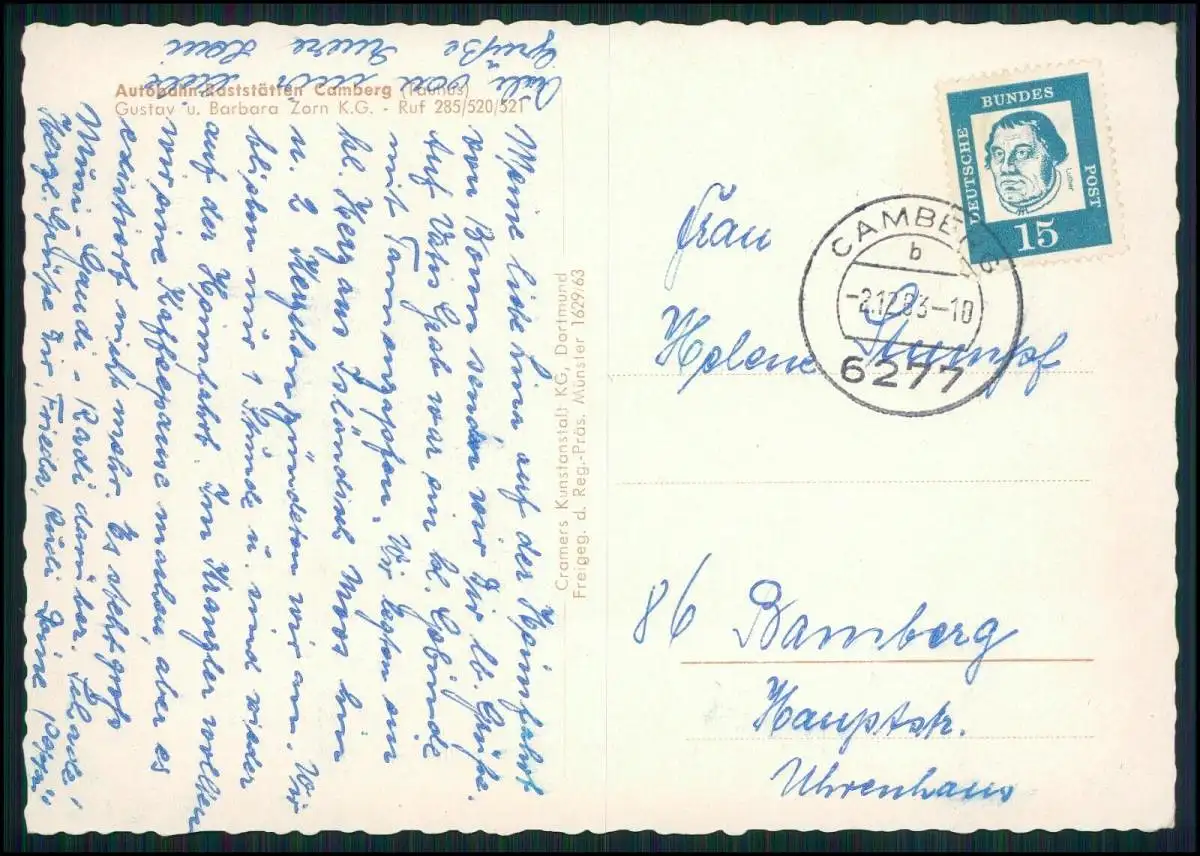 Autobahn-Raststätten Camberg (Taunus)
Gustav u. Barbara Zorn K.G. - Ruf 285/520/521
Meine liebe Lina auf der Heimfahrt
von Bonn senden wir Dir lb. Grüße.
Auf Vatis Grab war ein kl. Gebinde
mit Tannenzapfen. Wir legten ein
kl. Herz aus Isländisch Moos hin
u. 2 Kerzchen zündeten wir an. Wir
blieben nur 1 Stunde u. sind wieder
auf der Heimfahrt. Im Kranzler wollten
wir eine Kaffeepause machen, aber es
existiert nicht mehr. Es steht groß
Musi-Gaudi-Radi darüber. Schade!
Herzl. Grüße Dir, Frieda, Rudi Deine
Viele Grüße
von
Cramers Kunstanstalt KG, Dortmund
Freigeg. d. Reg.-Präs. Münster 1629/63
DEUTSCHE BUNDES POST
Luther
15
CAMBERG
b
-2.12.63-10
6277
Frau
Helene Stumpf
86 Bamberg
Hauptstr.
Uhrenhaus